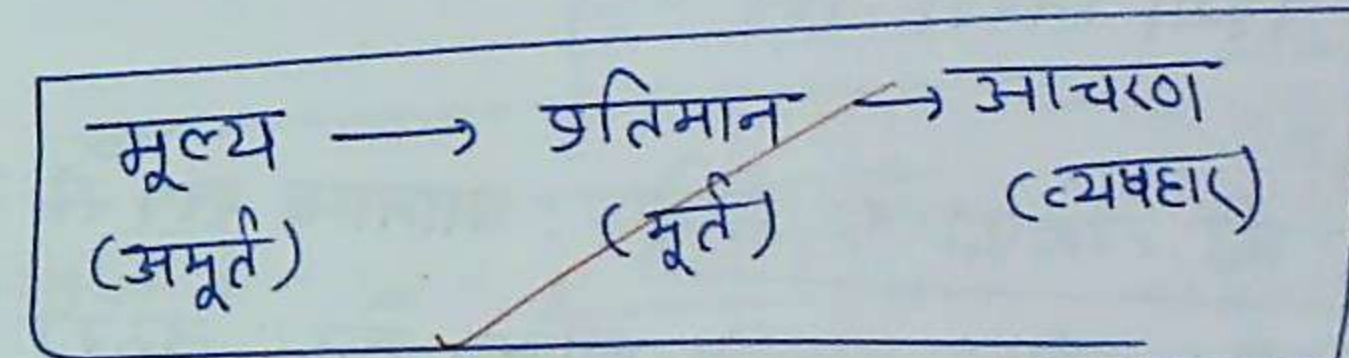 मूल्य → प्रतिमान → आचरण
(अमूर्त) (मूर्त) (व्यवहार)